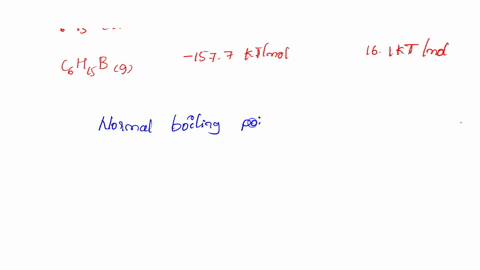 C₆H₁₅B (g) -157.7 kJ/mol 16.1 kJ/mol
Normal boiling poi